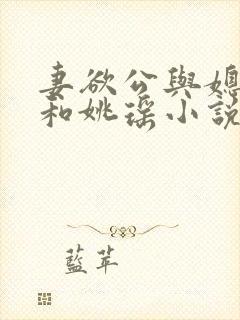 妻欲公與媳
和姚瑶小說
藍苹